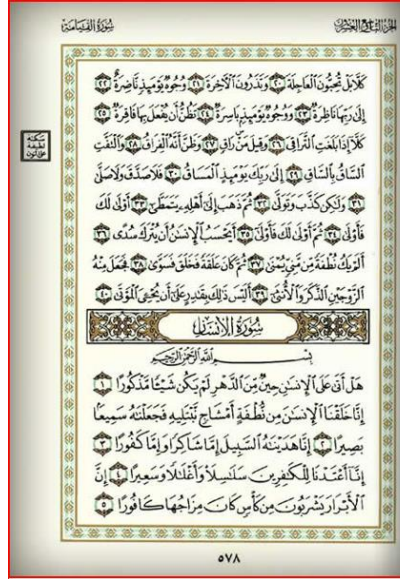 الجزء التاسع والعشرون
سورة القيامة
كَلَّا بَلْ تُحِبُّونَ ٱلْعَاجِلَةَ ٢٠ وَتَذَرُونَ ٱلْآخِرَةَ ٢١ وُجُوهٌ يَوْمَئِذٍ نَّاضِرَةٌ ٢٢
إِلَىٰ رَبِّهَا نَاظِرَةٌ ٢٣ وَوُجُوهٌ يَوْمَئِذٍ بَاسِرَةٌ ٢٤ تَظُنُّ أَن يُفْعَلَ بِهَا فَاقِرَةٌ ٢٥
كَلَّا إِذَا بَلَغَتِ ٱلتَّرَاقِيَ ٢٦ وَقِيلَ مَنْ رَاقٍ ٢٧ وَظَنَّ أَنَّهُ ٱلْفِرَاقُ ٢٨ وَٱلْتَفَّتِ
ٱلسَّاقُ بِٱلسَّاقِ ٢٩ إِلَىٰ رَبِّكَ يَوْمَئِذٍ ٱلْمَسَاقُ ٣٠ فَلَا صَدَّقَ وَلَا صَلَّىٰ
٣١ وَلَٰكِن كَذَّبَ وَتَوَلَّىٰ ٣٢ ثُمَّ ذَهَبَ إِلَىٰ أَهْلِهِ يَتَمَطَّىٰ ٣٣ أَوْلَىٰ لَكَ
فَأَوْلَىٰ ٣٤ ثُمَّ أَوْلَىٰ لَكَ فَأَوْلَىٰ ٣٥ أَيَحْسَبُ ٱلْإِنسَٰنُ أَن يُتْرَكَ سُدًى ٣٦
أَلَمْ يَكُ نُطْفَةً مِّن مَّنِىٍّ يُمْنَىٰ ٣٧ ثُمَّ كَانَ عَلَقَةً فَخَلَقَ فَسَوَّىٰ ٣٨ فَجَعَلَ مِنْهُ
ٱلزَّوْجَيْنِ ٱلذَّكَرَ وَٱلْأُنثَىٰ ٣٩ أَلَيْسَ ذَٰلِكَ بِقَٰدِرٍ عَلَىٰ أَن يُحْـِۧىَ ٱلْمَوْتَىٰ ٤٠
سُورَةُ الإِنسَانِ
بِسْمِ ٱللَّهِ ٱلرَّحْمَٰنِ ٱلرَّحِيمِ
هَلْ أَتَىٰ عَلَى ٱلْإِنسَٰنِ حِينٌ مِّنَ ٱلدَّهْرِ لَمْ يَكُن شَيْـًٔا مَّذْكُورًا ١
إِنَّا خَلَقْنَا ٱلْإِنسَٰنَ مِن نُّطْفَةٍ أَمْشَاجٍ نَّبْتَلِيهِ فَجَعَلْنَٰهُ سَمِيعًۢا
بَصِيرًا ٢ إِنَّا هَدَيْنَٰهُ ٱلسَّبِيلَ إِمَّا شَاكِرًا وَإِمَّا كَفُورًا ٣
إِنَّآ أَعْتَدْنَا لِلْكَٰفِرِينَ سَلَٰسِلَا۟ وَأَغْلَٰلًا وَسَعِيرًا ٤ إِنَّ
ٱلْأَبْرَارَ يَشْرَبُونَ مِن كَأْسٍ كَانَ مِزَاجُهَا كَافُورًا ٥
٥٧٨
سكتة
لطيفة
على النون